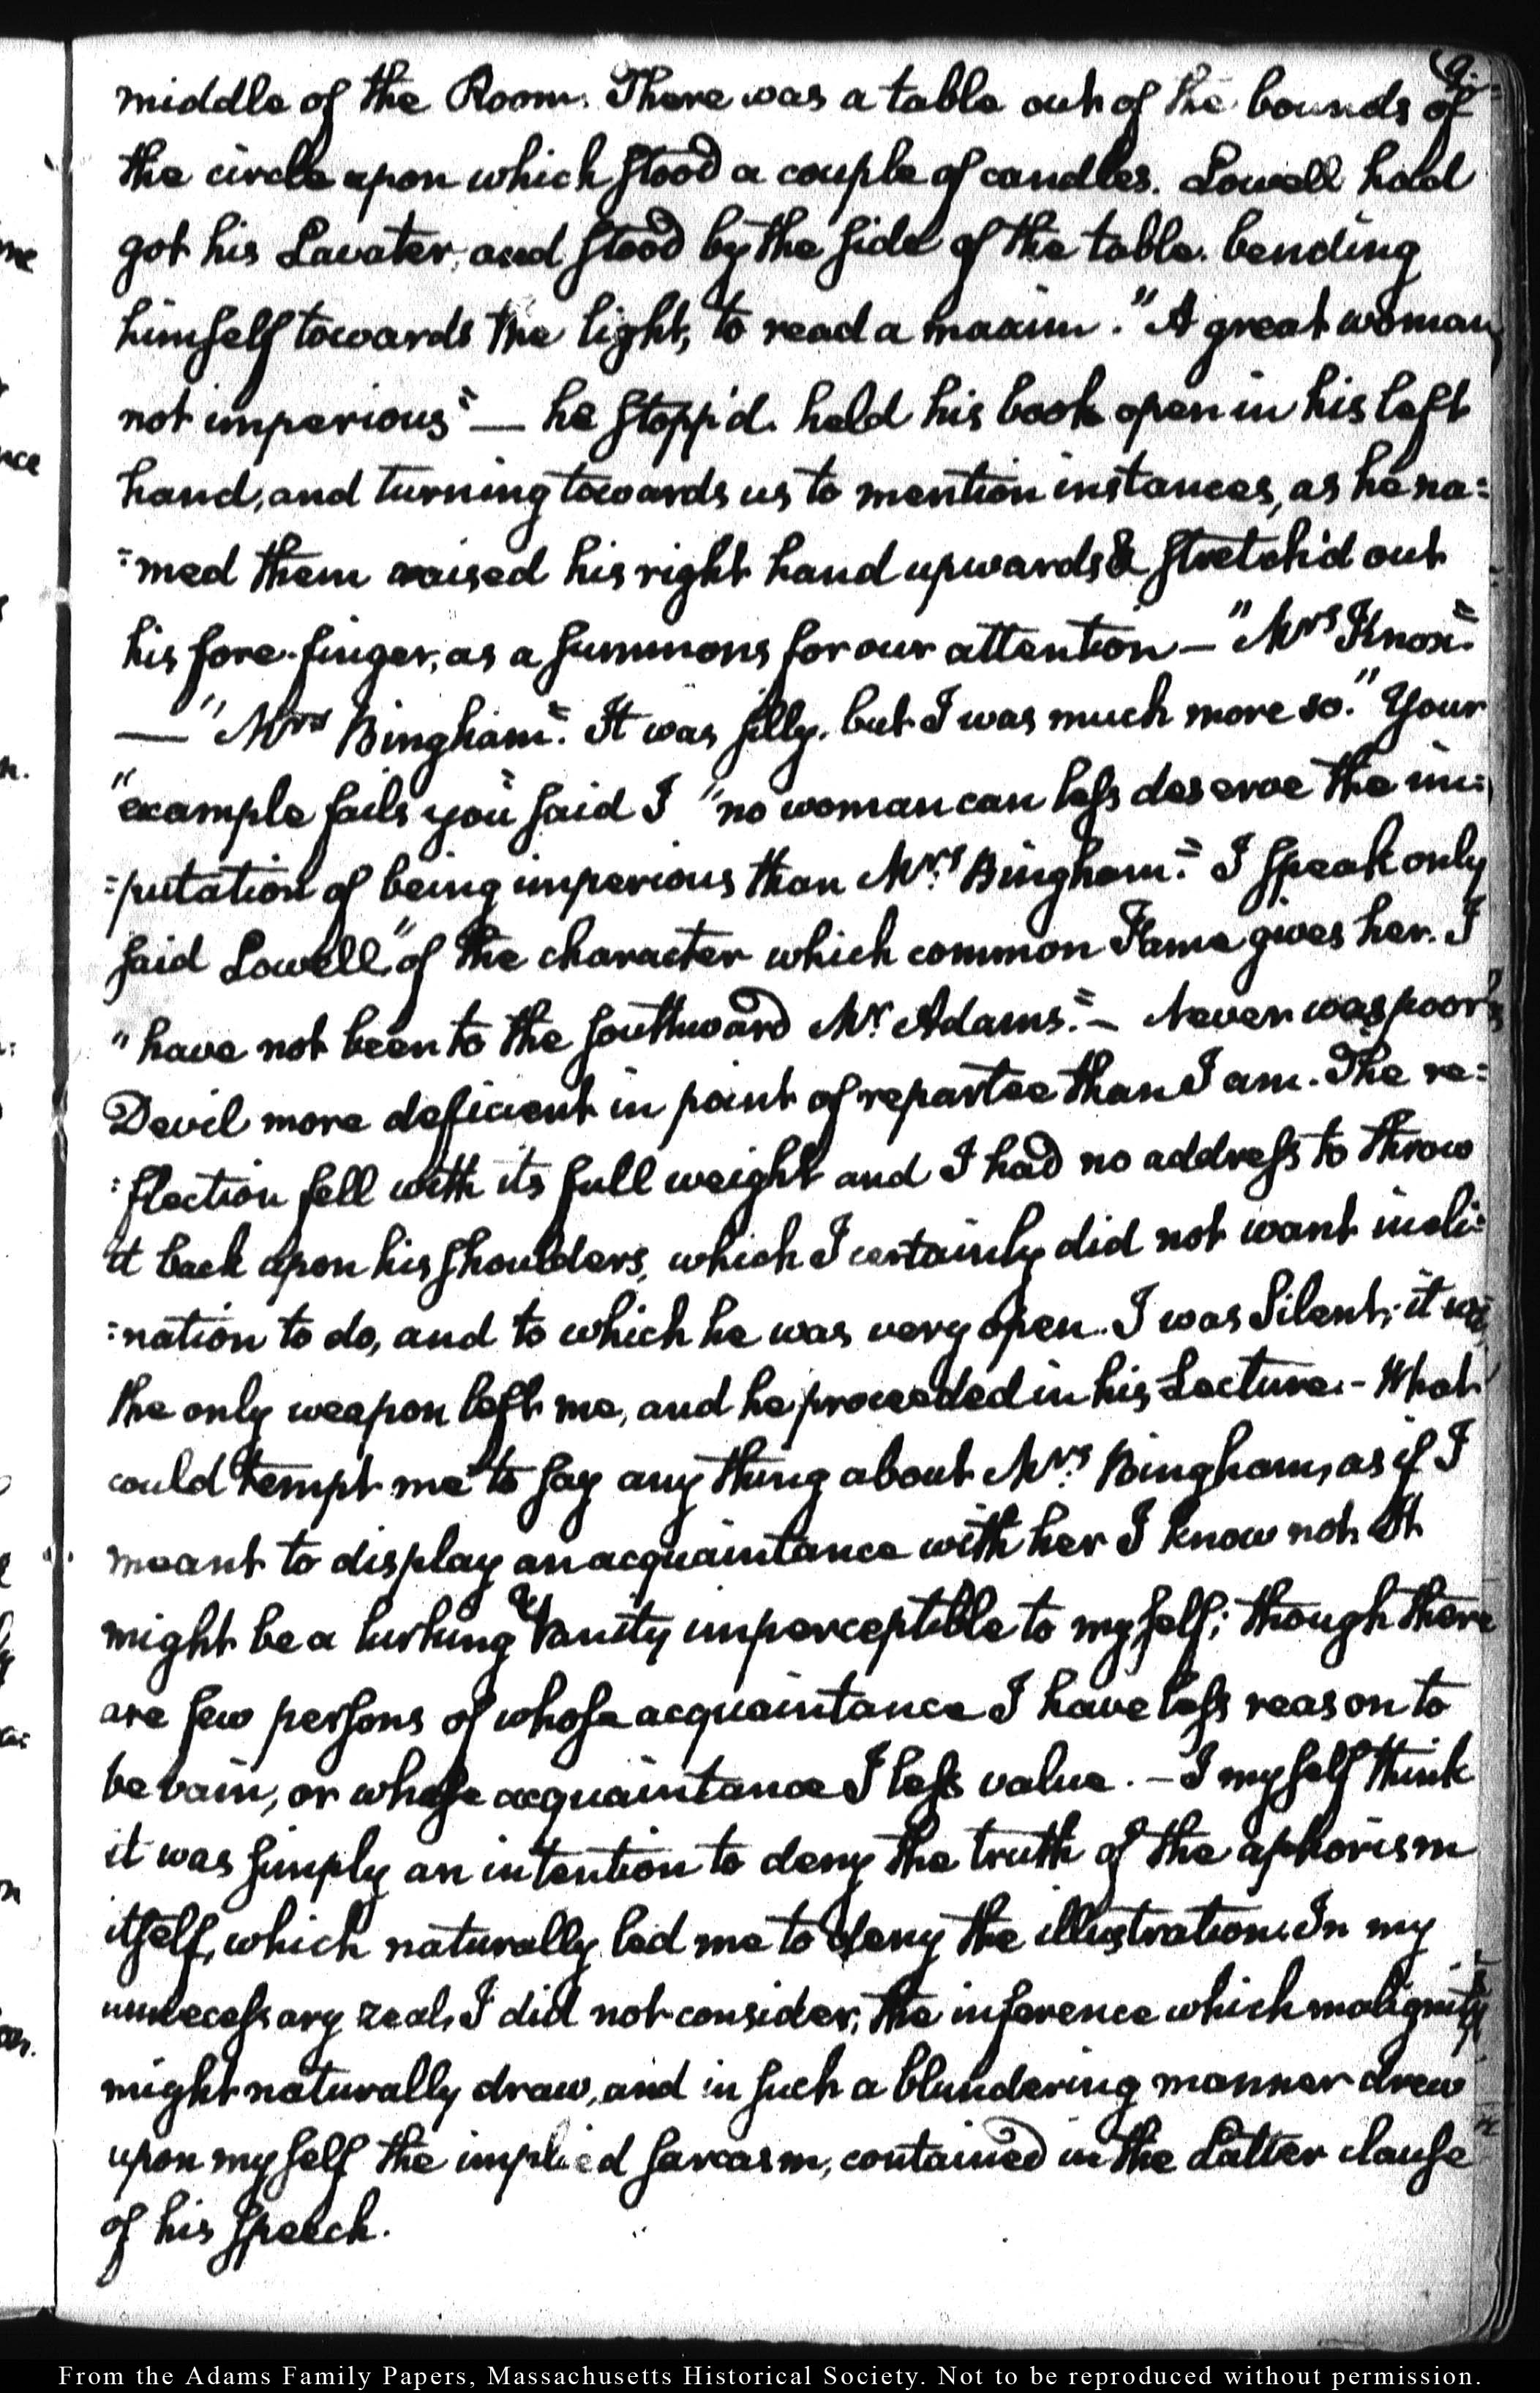 9.
middle of the Room. There was a table out of the bounds of
the circle upon which stood a couple of candles. Lowell hold
got his Lavater, and stood by the side of the table. bending
himself towards the light, to read a maxim. "A great woman
not imperious" — he stopp'd. held his book open in his left
hand, and turning towards us to mention instances, as he na=
=med them raised his right hand upwards & stretch'd out
his fore-finger, as a summons for our attention — "Mrs Knox"
— "Mrs Bingham". It was silly. but I was much more so. "Your
"example fails you" said I "no woman can less deserve the im=
=putation of being imperious than Mrs. Bingham". I speak only
said Lowell "of the character which common Fame gives her. I
"have not been to the southward Mr. Adams". — Never was poor
Devil more deficient in point of repartee than I am. The re=
=flection fell with its full weight and I had no address to throw
it back upon his shoulders, which I certainly did not want incli=
=nation to do, and to which he was very open. I was Silent; it was
the only weapon left me, and he proceeded in his Lecture. — What
could tempt me to say any thing about Mrs. Bingham, as if I
meant to display an acquaintance with her I know not. It
might be a lurking vanity imperceptible to myself; though there
are few persons of whose acquaintance I have less reason to
be vain, or whose acquaintance I less value. — I myself think
it was simply an intention to deny the truth of the aphorism
itself, which naturally led me to deny the illustration. In my
unnecessary zeal, I did not consider, the inference which malignity
might naturally draw, and in such a blundering manner drew
upon myself the implied sarcasm, contained in the Latter clause
of his speech.
From the Adams Family Papers, Massachusetts Historical Society. Not to be reproduced without permission.